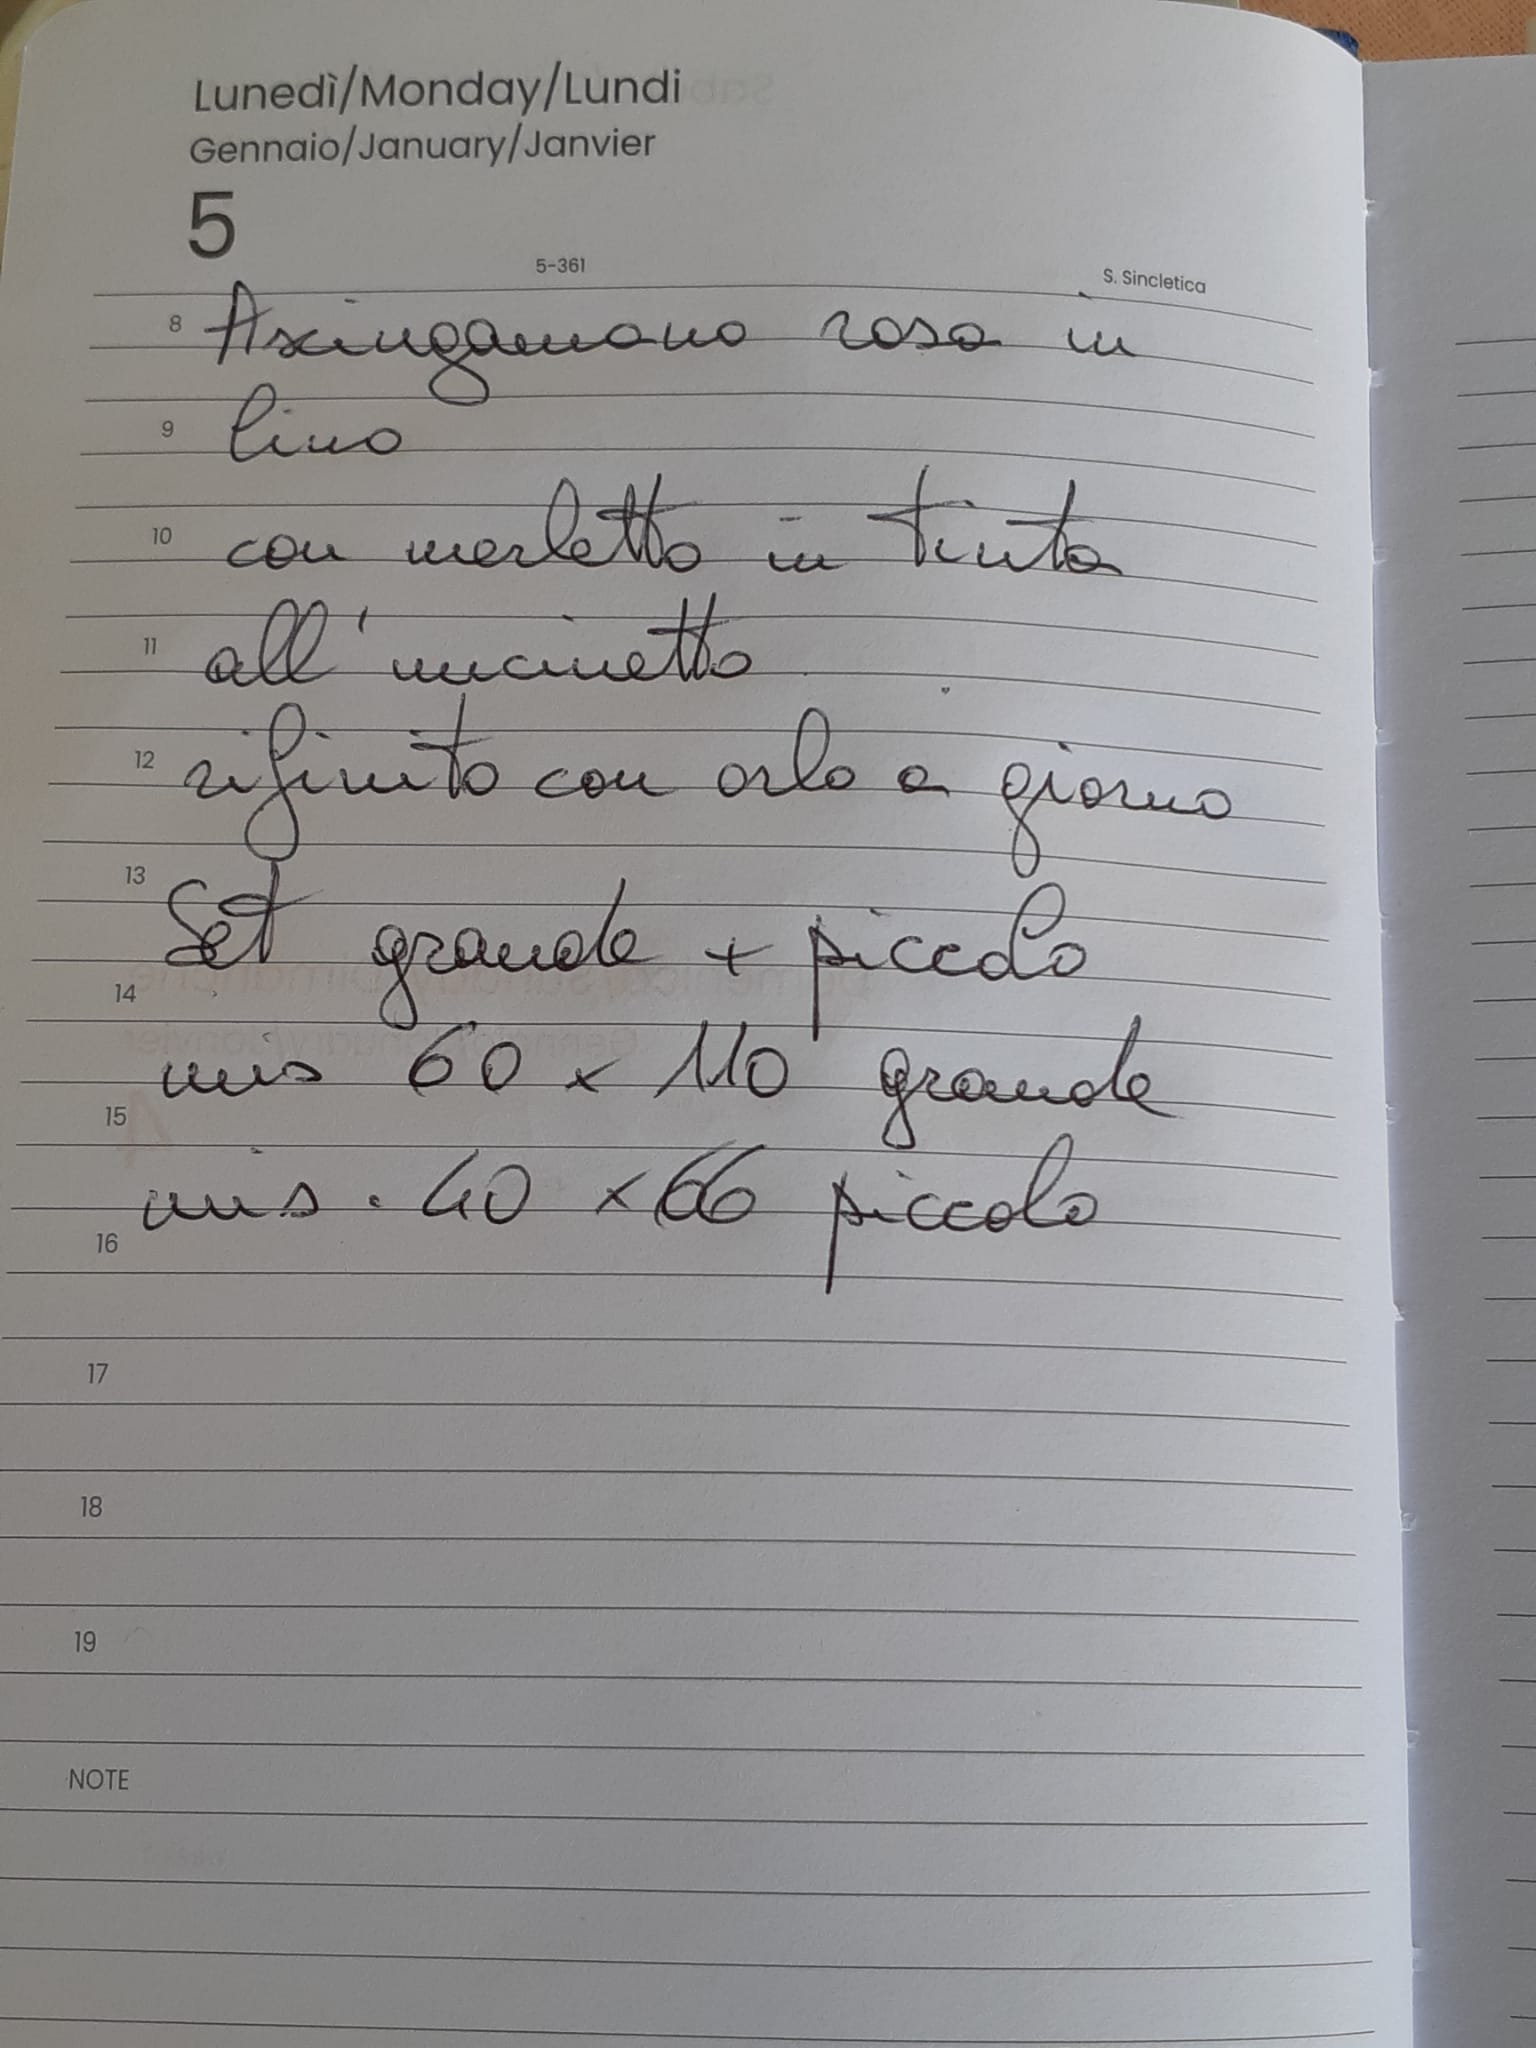 Lunedì/Monday/Lundi
Gennaio/January/Janvier
5
5-361
S. Sincletica
8 Asciugamano rosa in
9 lino
10 con merletto in tinta
11 all'uncinetto
12 rifinito con orlo a giorno
13 Set grande + piccolo
14
mis 60 x 110 grande
15
mis. 40 x 66 piccolo
16
17
18
19
NOTE